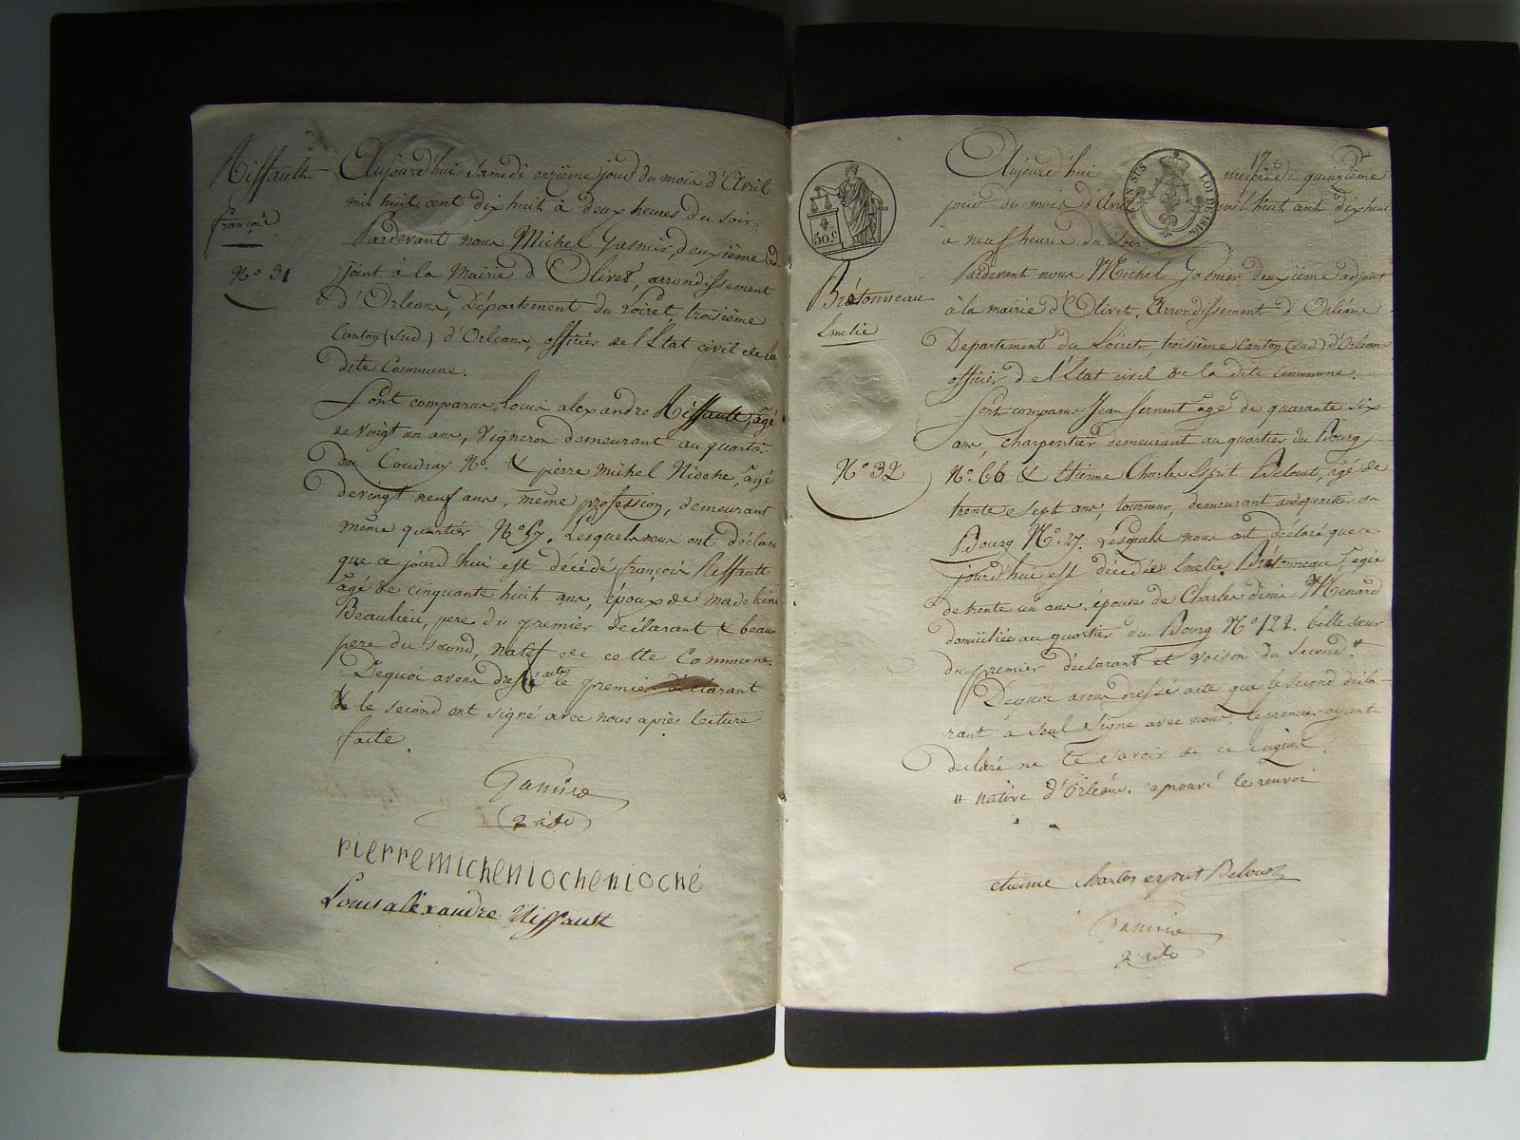 Riffault
françois
N.° 31
Aujourd'hui Samedi onzième jour du mois d'Avril
mil huit cent dix huit à deux heures du soir.
Pardevant nous Michel Gasnier, deuxième ad
joint à la Mairie d'Olivet, arrondissement
d'Orléans, Département du Loiret, troisième
Canton (Sud) d'Orléans, officier de l'Etat civil de la
dite Commune.
Sont comparus Louis alexandre Riffault, agé
de vingt un ans, Vigneron demeurant au quartier
du Coudray N.° & pierre Michel Nioche, agé
de vingt neuf ans, même profession, demeurant
même quartier N.° 67. Lesquels nous ont déclaré
que ce jourd'hui est décédé françois Riffault
agé de cinquante huit ans, époux de Madeleine
Beaulieu, pere du premier déclarant & beau
pere du second, natif de cette Commune.
Dequoi avons dressé acte le premier déclarant
& le second ont signé avec nous après lecture
faite.
Gasnier
pierremicheniochenioché
Louis alexandre Riffault
50 c
LOI DU 1816
Bretonneau
Emelie
N.° 32
Aujourd'hui quinzième
jour du mois d'Avril mil huit cent dix huit
à neuf heures du soir
Pardevant nous Michel Gasnier deuxième adjoint
à la mairie d'Olivet, Arrondissement d'Orléans
Département du Loiret, troisième Canton (Sud) d'Orléans
officier de l'État civil de la dite commune.
Sont comparus Jean agé de quarante six
ans, charpentier demeurant au quartier du Bourg
N.° 66 & Etienne Charles Esprit Belouet, agé de
trente sept ans, tonnelier, demeurant au quartier du
Bourg N.° 27. Lesquels nous ont déclaré que ce
jourd'hui est décédée Emelie Bretonneau, agée
de trente un ans, épouse de Charles denis Menard
domiciliée au quartier du Bourg N.° 121. belle sœur
du premier déclarant et voisin du second. #
Dequoi avons dressé acte que le second décla-
rant à seul signé avec nous, le premier ayant
déclaré ne le savoir de ce enquis.
# native d'Orléans. aprouvé le renvoi
etienne charles esprit Belouet
Gasnier